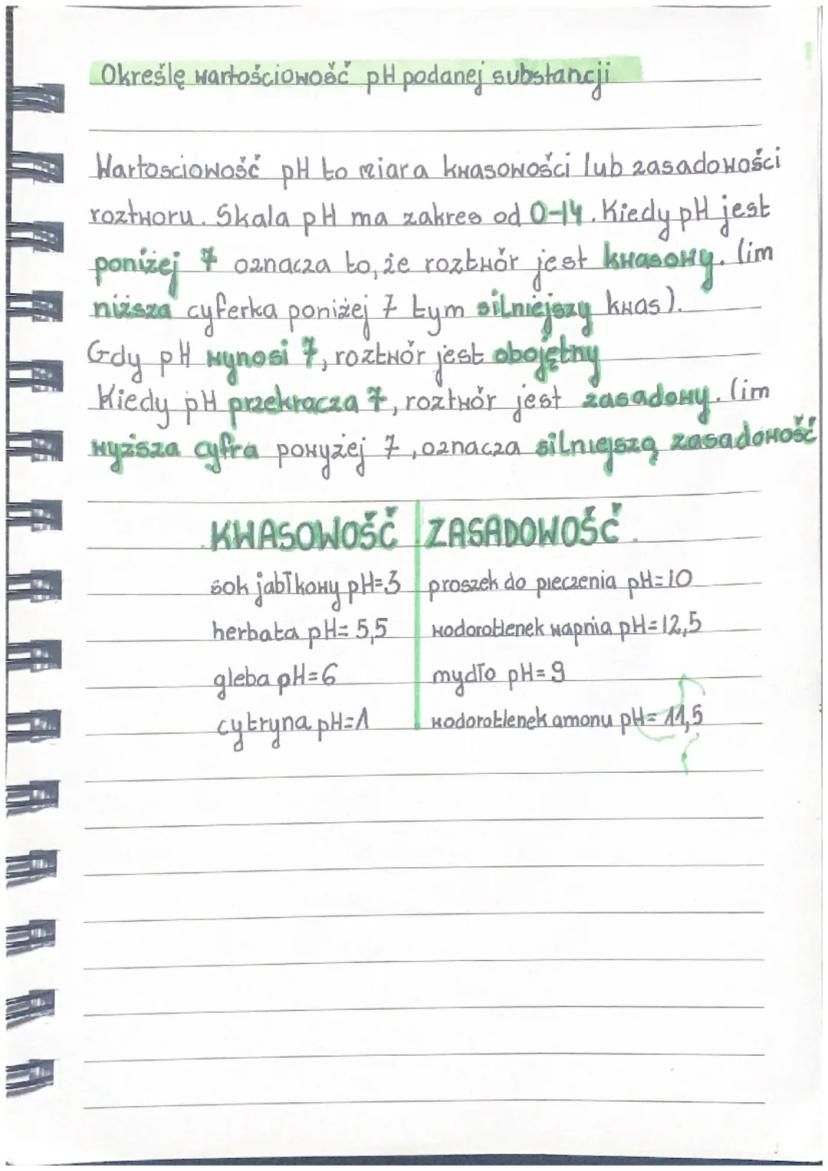 Określę wartościowość pH podanej substancji
Wartosciowość pH to miara kwasowości lub zasadowości
roztworu. Skala pH ma zakres od 0-14. Kiedy pH jest
poniżej 7 oznacza to, że roztwór jest kwasowy. (im
niższa cyferka poniżej 7 tym silniejszy kwas).
Gdy pH wynosi 7, roztwór jest obojętny
Kiedy pH przekracza 7, roztwór jest zasadowy. (im
wyższa cyfra powyżej 7, oznacza silniejszą zasadowość
KWASOWOŚĆ ZASADOWOŚĆ.
sok jabłkowy pH=3 proszek do pieczenia pH=10
herbata pH= 5,5 wodorotlenek wapnia pH=12,5
gleba pH=6 mydło pH=9
cytryna pH=1 wodorotlenek amonu pH= 11,5